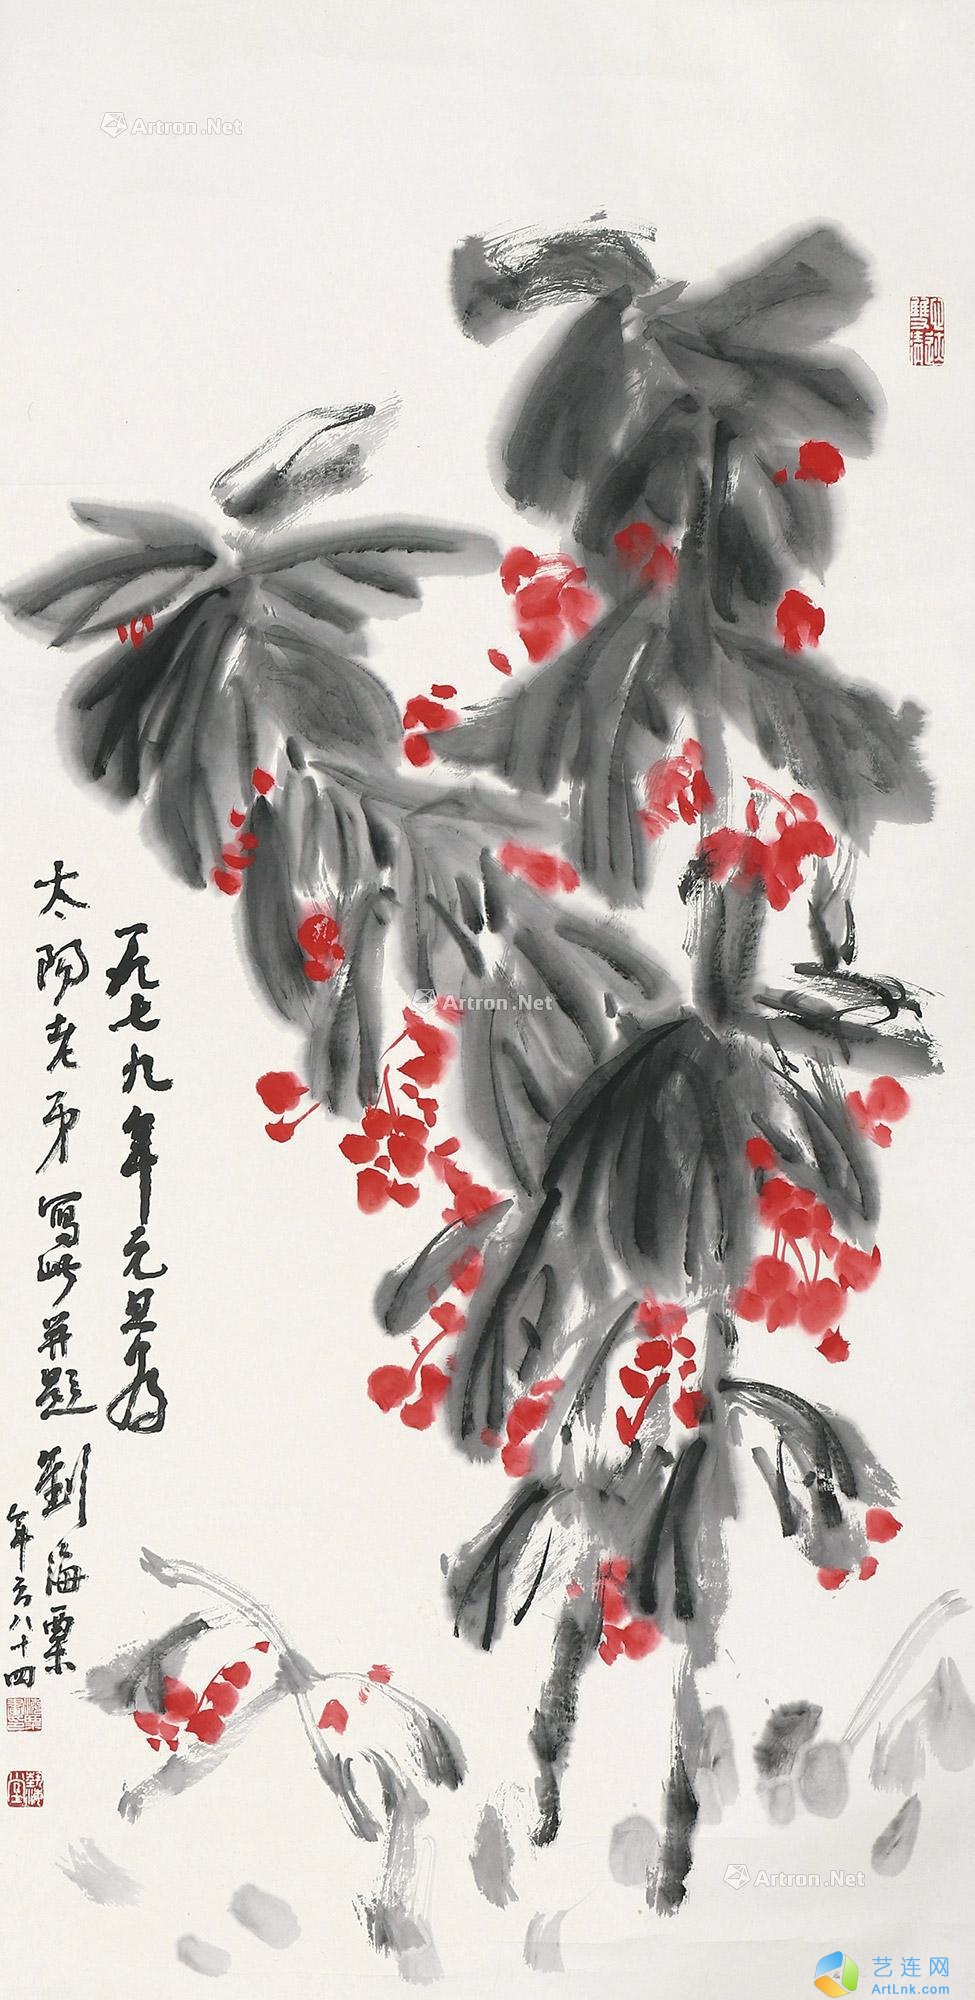 Artron.Net
一九七九年元旦為
太陽老弟寫此並題
劉海粟
年方八十四
Artron.Net
Artron.Net
艺连网
ArtLnk.com